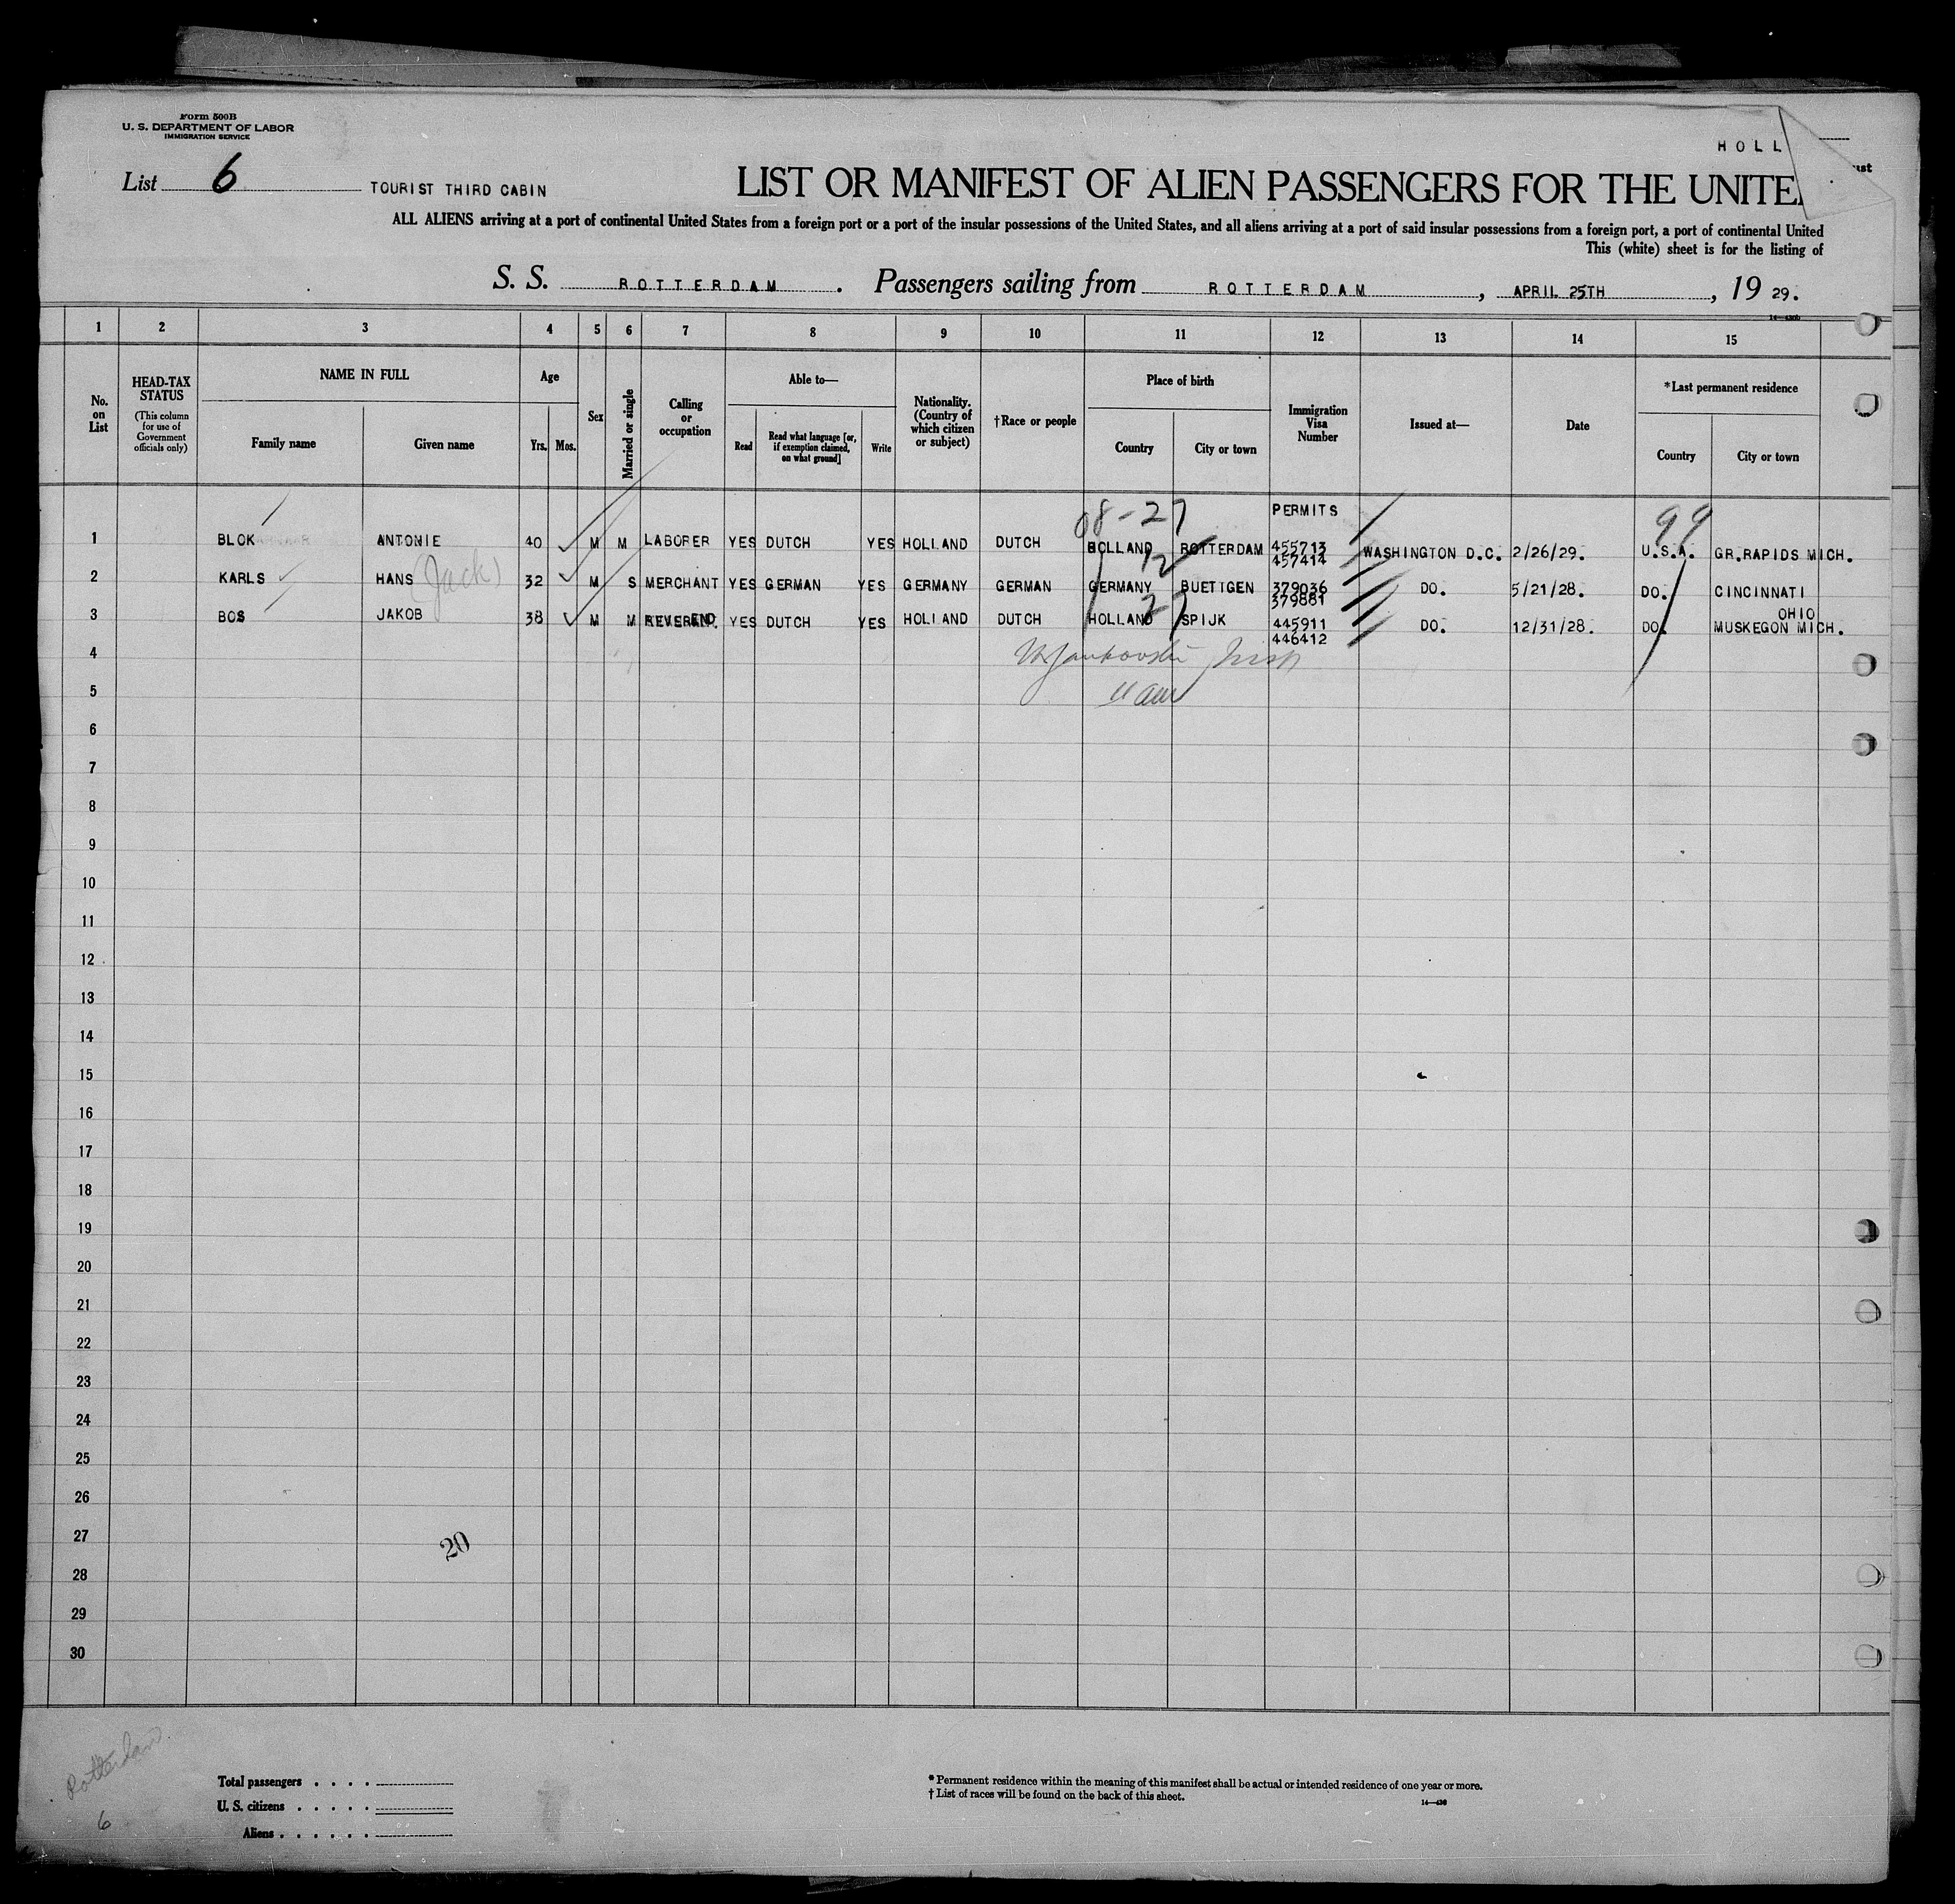 Form 500B
U. S. DEPARTMENT OF LABOR
IMMIGRATION SERVICE
HOLL
List 6 TOURIST THIRD CABIN
LIST OR MANIFEST OF ALIEN PASSENGERS FOR THE UNITE
ALL ALIENS arriving at a port of continental United States from a foreign port or a port of the insular possessions of the United States, and all aliens arriving at a port of said insular possessions from a foreign port, a port of continental United
This (white) sheet is for the listing of
S. S. ROTTERDAM. Passengers sailing from ROTTERDAM, APRIL 25TH, 19 29.
14—430b
1 2 3 4 5 6 7 8 9 10 11 12 13 14 15
No. on List
HEAD-TAX STATUS (This column for use of Government officials only)
NAME IN FULL
Family name Given name
Age
Yrs. Mos.
Sex
Married or single
Calling or occupation
Able to—
Read Read what language [or, if exemption claimed, on what ground] Write
Nationality. (Country of which citizen or subject)
†Race or people
Place of birth
Country City or town
Immigration Visa Number
Issued at—
Date
*Last permanent residence
Country City or town
08-27 PERMITS 99
1 BLOK ANTONIE 40 M M LABORER YES DUTCH YES HOLLAND DUTCH HOLLAND ROTTERDAM 455713 WASHINGTON D.C. 2/26/29. U.S.A. GR.RAPIDS MICH.
457414
12
2 KARLS HANS (Jack) 32 M S MERCHANT YES GERMAN YES GERMANY GERMAN GERMANY BUETTGEN 379036 DO. 5/21/28. DO. CINCINNATI
379881 OHIO
27
3 BOS JAKOB 38 M M REVEREND. YES DUTCH YES HOLLAND DUTCH HOLLAND SPIJK 445911 DO. 12/31/28. DO. MUSKEGON MICH.
446412
4
5
6
7
8
9
10
11
12
13
14
15
16
17
18
19
20
21
22
23
24
25
26
27
20
28
29
30
Rotterdam
6
Total passengers
U. S. citizens
Aliens
* Permanent residence within the meaning of this manifest shall be actual or intended residence of one year or more.
† List of races will be found on the back of this sheet.
14—430